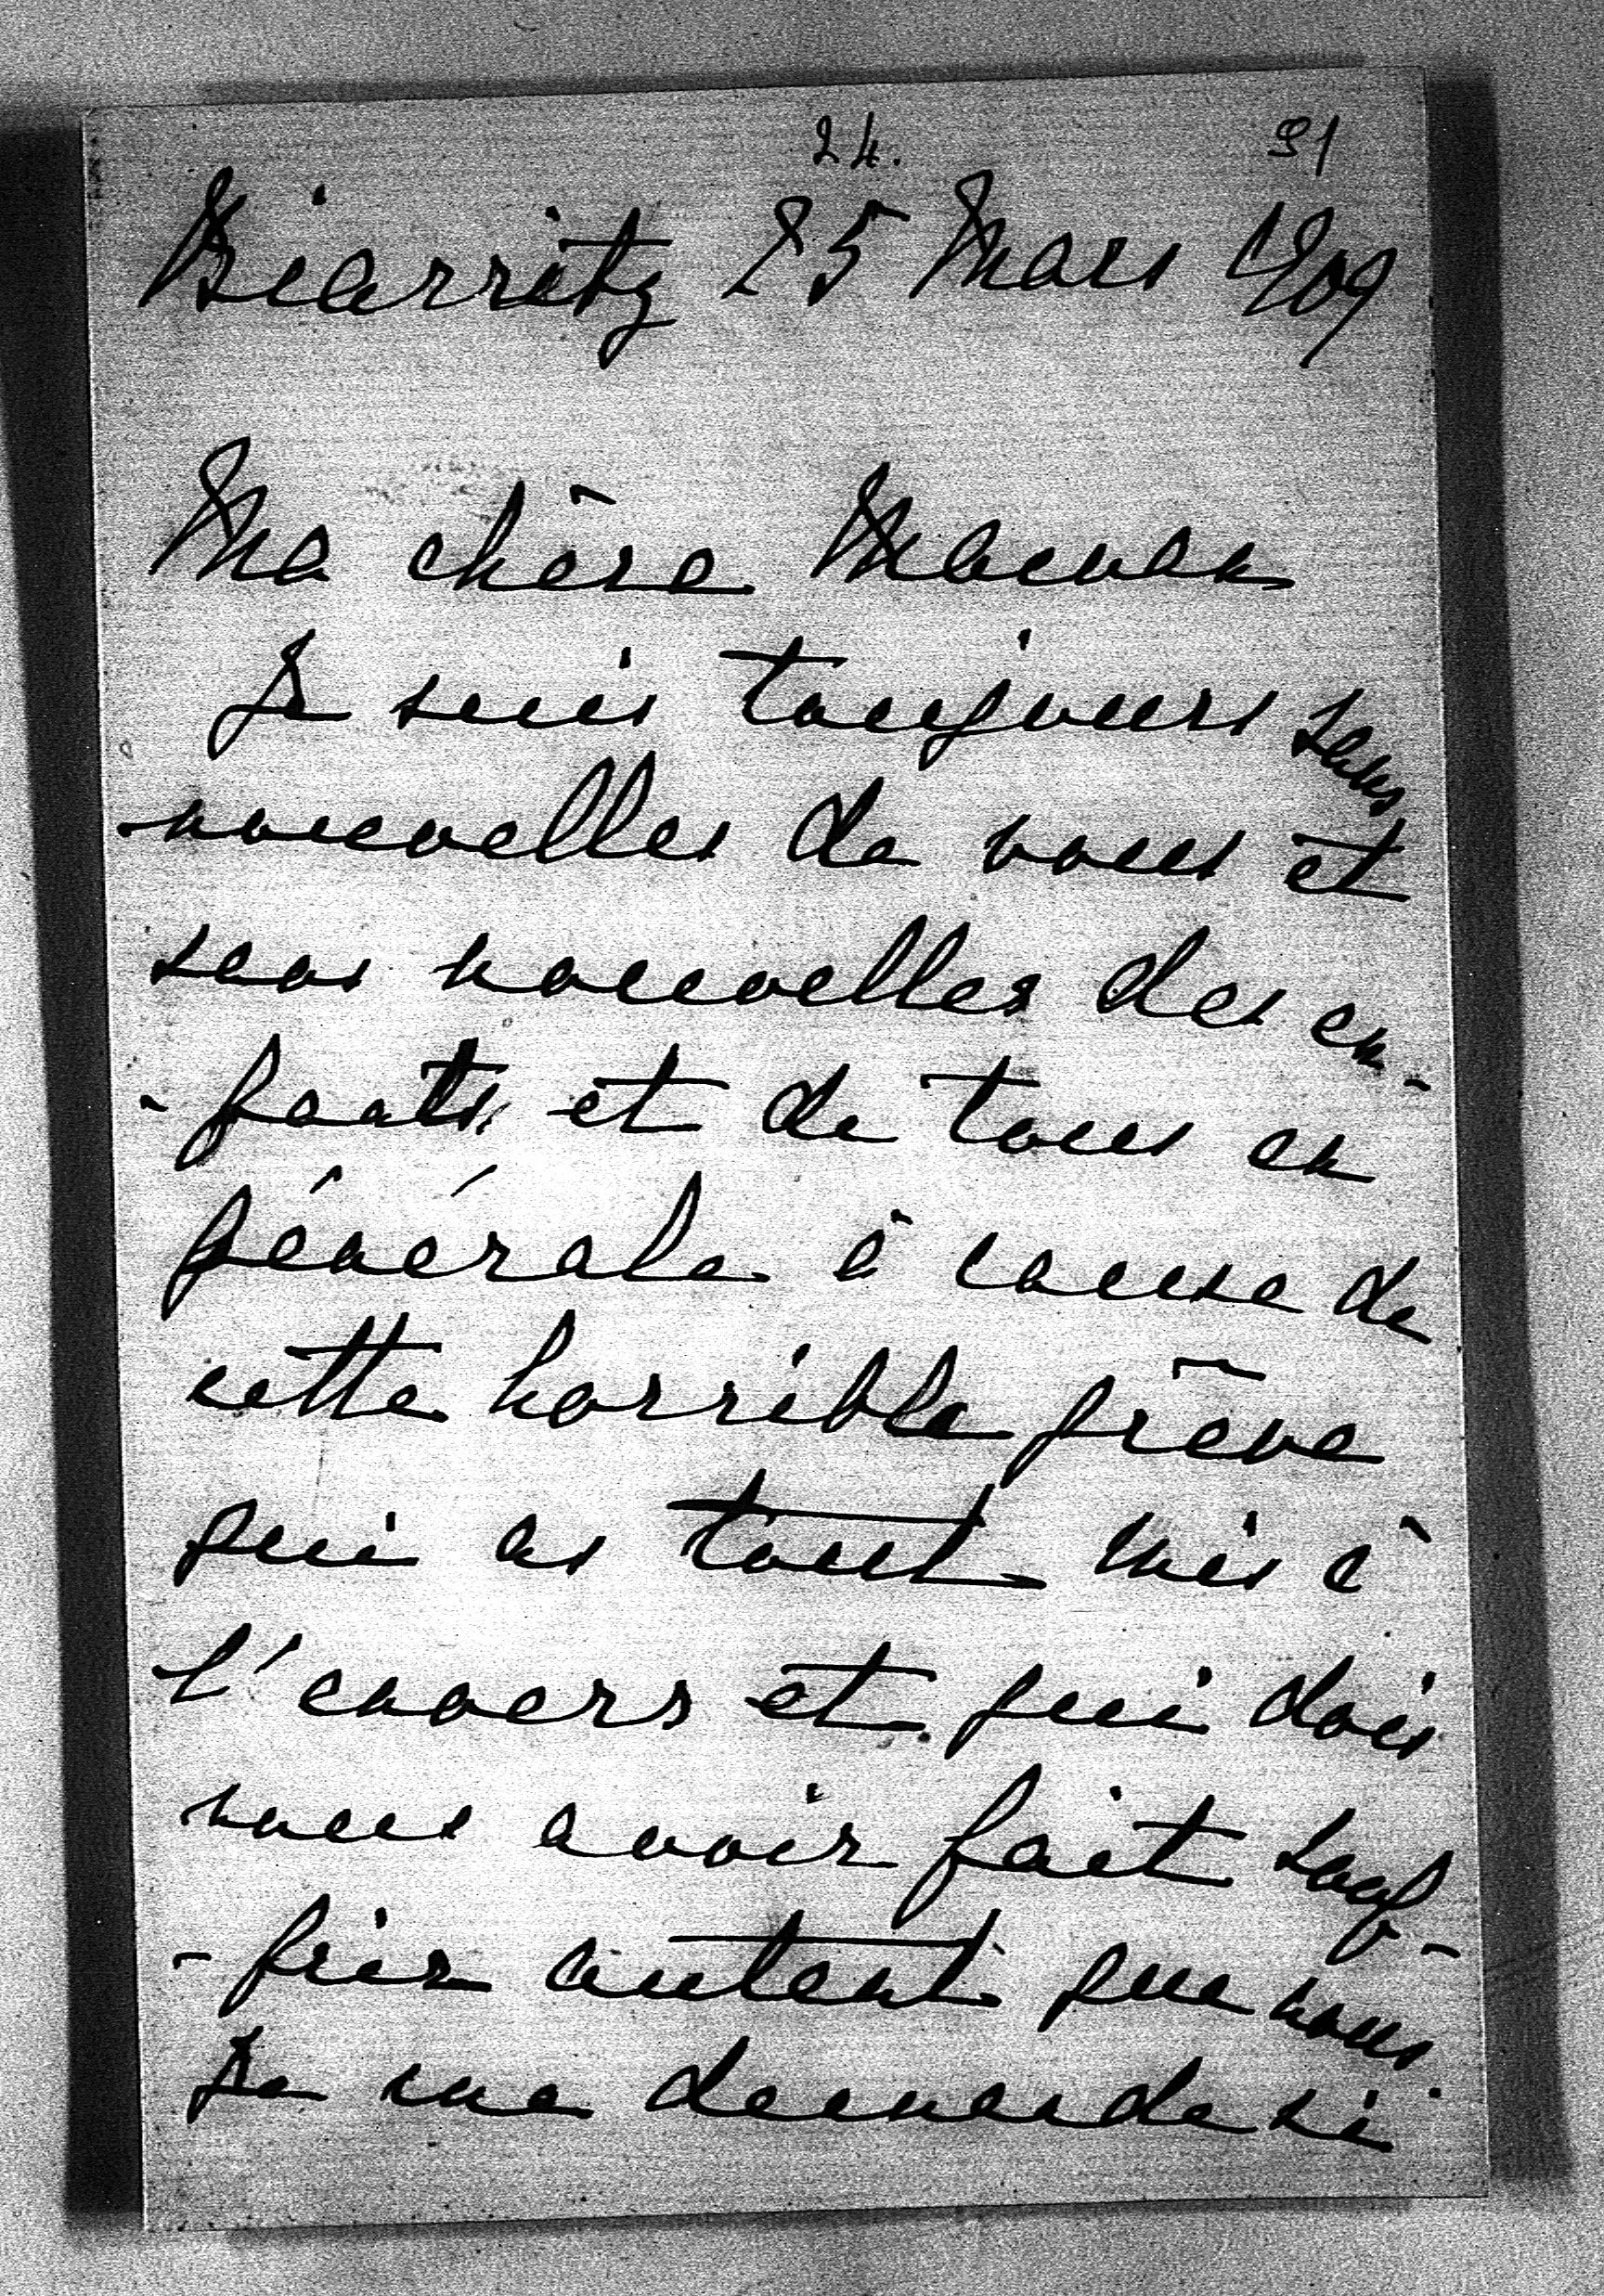 24. 91
Biarritz 25 Mars 1909
Ma chère Maman
Je suis toujours sans
nouvelles de vous et
sans nouvelles des en-
-fants et de tous en
générale à cause de
cette horrible grève
qui as tout mis à
l'envers et qui dois
vous avoir fait souf-
-frir autant que nous.
Je me demande si